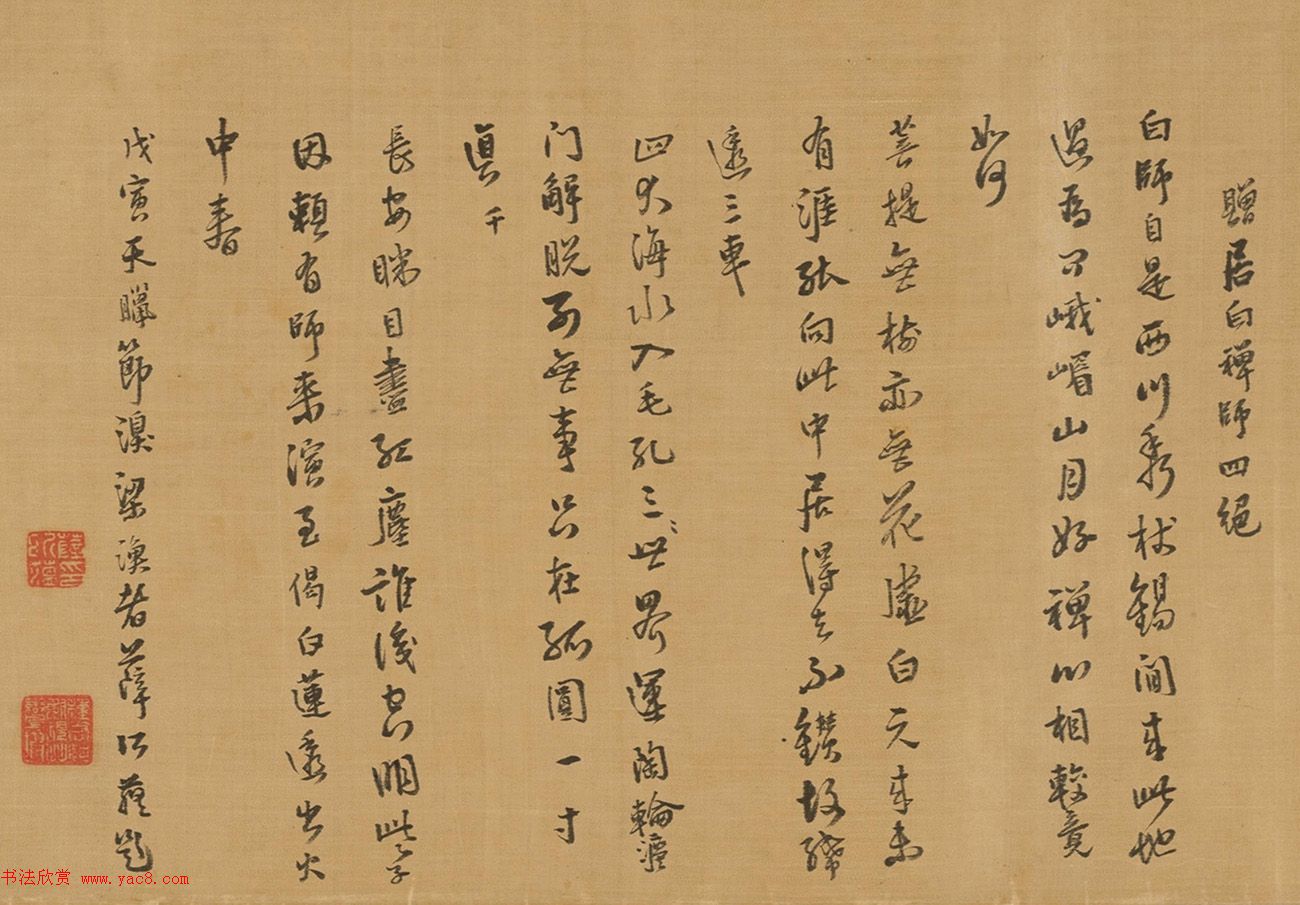 贈居白禪師四絕
白師自是西川秀杖錫閒來此地
過為問峨嵋山月好禪心相較竟
如何
菩提無樹亦無花虛白元來未
有涯張向此中居得去不鑽故紙
透三車
四大海水入毛孔三世界運陶輪
门解脫都無事只在孤圓一寸
真千
長安眯目盡紅塵誰識空明此
因賴有師來演至偈白蓮透出火
中春
戊寅天臘節漁者薛明益題
书法欣赏 www.yac8.com